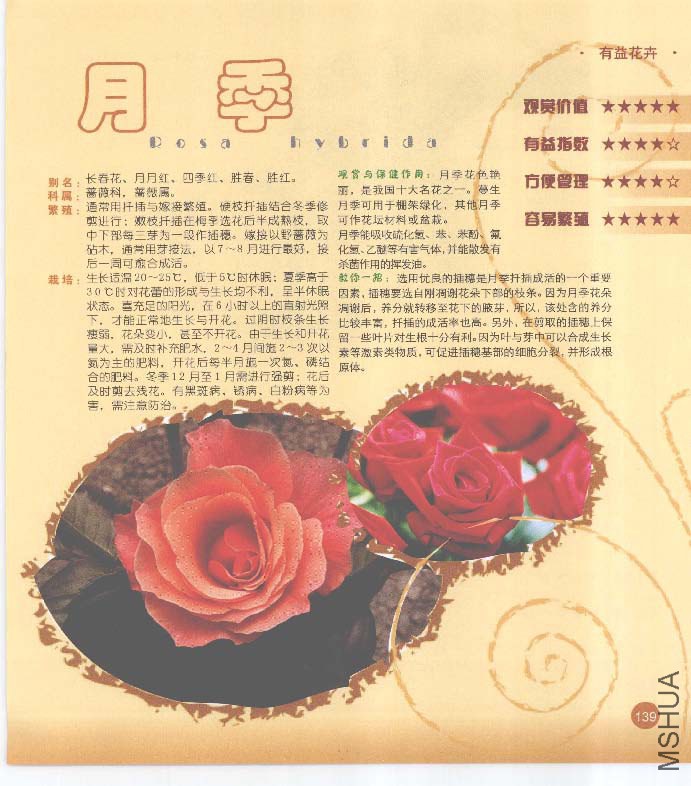 · 有益花卉 ·
月 季
Rosa hybrida
观赏价值 ★★★★★
有益指数 ★★★★☆
方便管理 ★★★★☆
容易繁殖 ★★★★★
别名：长春花、月月红、四季红、胜春、胜红。
科属：蔷薇科，蔷薇属。
繁殖：通常用扦插与嫁接繁殖。硬枝扦插结合冬季修
剪进行；嫩枝扦插在梅季选花后半成熟枝，取
中下部每三芽为一段作插穗。嫁接以野蔷薇为
砧木，通常用芽接法，以7～8月进行最好，接
后一周可愈合成活。
栽培：生长适温20～25℃，低于5℃时休眠；夏季高于
30℃时对花蕾的形成与生长均不利，呈半休眠
状态。喜充足的阳光，在6小时以上的直射光照
下，才能正常地生长与开花。过阴时枝条生长
瘦弱，花朵变小，甚至不开花。由于生长和开花
量大，需及时补充肥水，2～4月间施2～3次以
氮为主的肥料，开花后每半月施一次氮、磷结
合的肥料。冬季12月至1月需进行强剪；花后
及时剪去残花。有黑斑病、锈病、白粉病等为
害，需注意防治。
观赏与保健作用：月季花色艳
丽，是我国十大名花之一。蔓生
月季可用于棚架绿化，其他月季
可作花坛材料或盆栽。
月季能吸收硫化氢、苯、苯酚、氟
化氢、乙醚等有害气体，并能散发有
杀菌作用的挥发油。
教你一招：选用优良的插穗是月季扦插成活的一个重要
因素，插穗要选自刚凋谢花朵下部的枝条。因为月季花朵
凋谢后，养分就转移至花下的腋芽，所以，该处含的养分
比较丰富，扦插的成活率也高。另外，在剪取的插穗上保
留一些叶片对生根十分有利。因为叶与芽中可以合成生长
素等激素类物质，可促进插穗基部的细胞分裂，并形成根
原体。
139
MSHUA